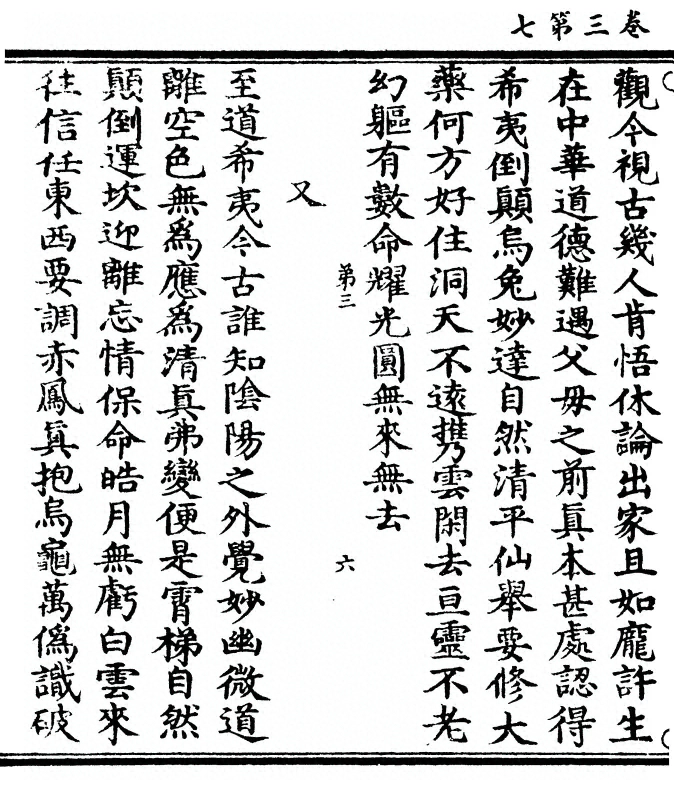 七第三卷
觀今視古幾人肯悟休論出家且如龐許生
在中華道德難遇父母之前眞本甚處認得
希夷倒顛烏兔妙達自然清平仙舉要修大
藥何方好住洞天不遠携雲閑去亘靈不老
幻軀有數命耀光圓無來無去
第三
六
又
至道希夷今古誰知陰陽之外覺妙幽微道
離空色無爲應爲清眞弗變便是霄梯自然
顛倒運坎迎離忘情保命皓月無虧白雲來
往信任東西要調赤鳳眞抱烏龜萬僞識破